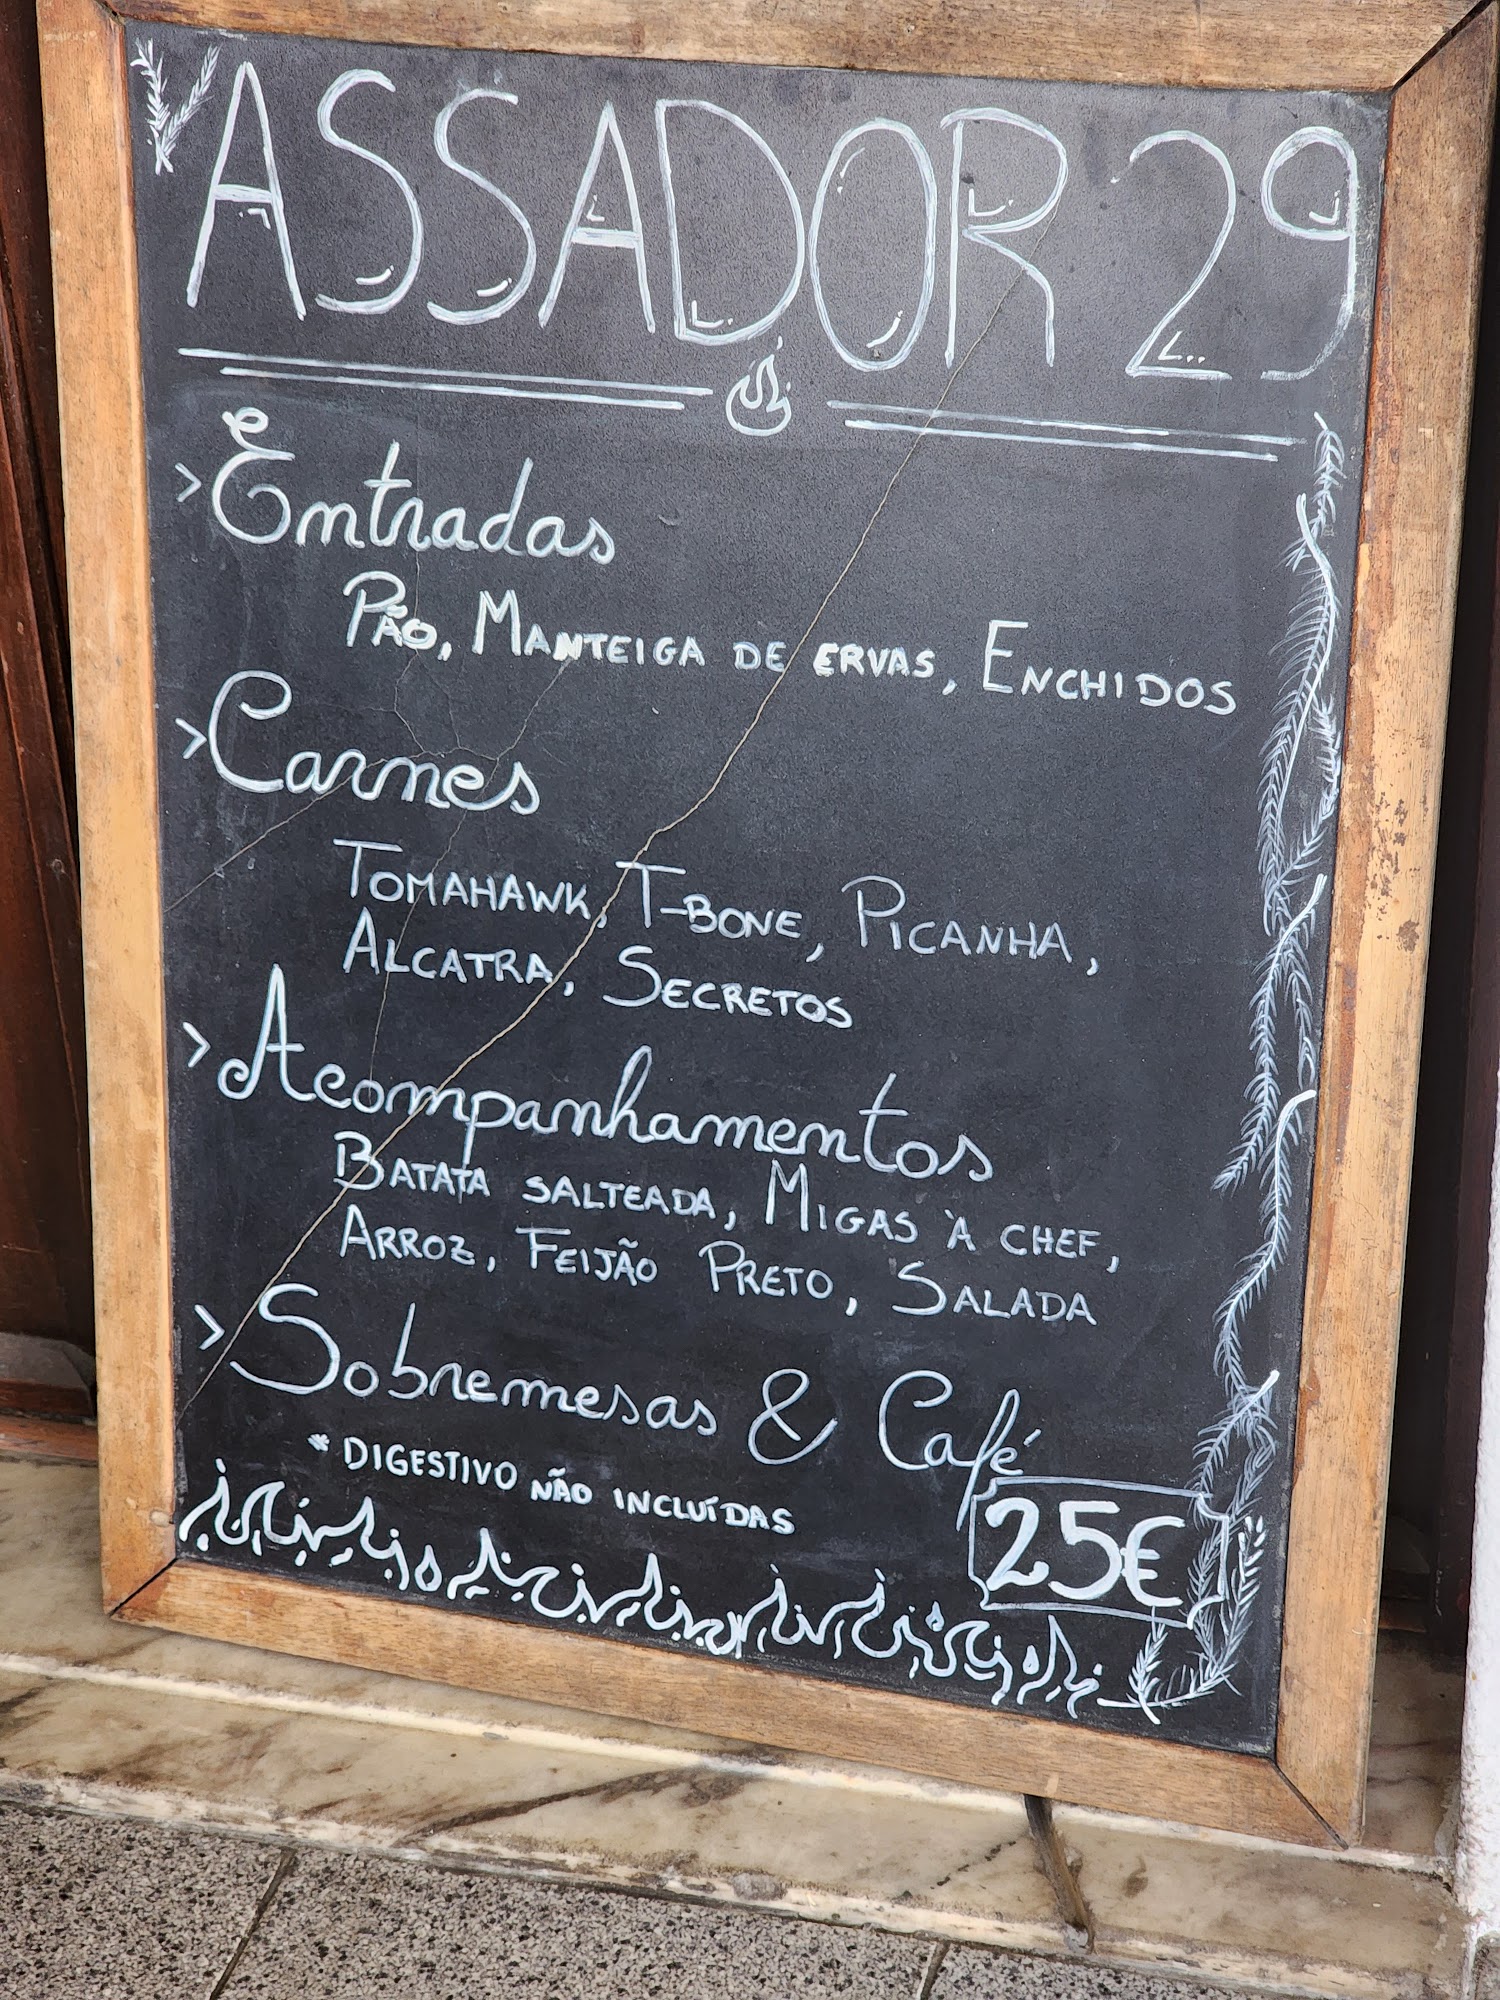 ASSADOR 29
> Entradas
PÃO, MANTEIGA DE ERVAS, ENCHIDOS
> Carnes
TOMAHAWK, T-BONE, PICANHA,
ALCATRA, SECRETOS
> Acompanhamentos
BATATA SALTEADA, MIGAS À CHEF,
ARROZ, FEIJÃO PRETO, SALADA
> Sobremesas & Café
* DIGESTIVO NÃO INCLUÍDAS
25€